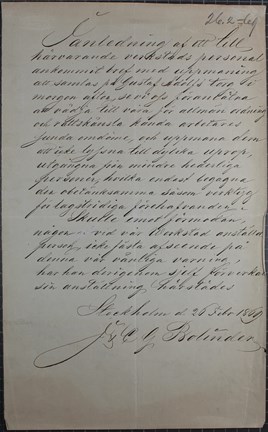 26.2.-69
I anledning af att till
härvarande verkstads personal
ankommit bref med uppmaning
att samlas å Gustaf Adolfs torg i
morgon afton, se vi oss föranlåtna
att vädja till våra för allmän ordning
och rättskänsla kända arbetares
sunda omdöme, och uppmana dem
att icke lyssna till dylika upprop,
utgångna från mindre hederliga
personer, hvilka endast begagna
den obetänksamma såsom verktyg
för lagstridiga förehafvanden.
Skulle emot förmodan,
någon vid vår verkstad anställd
person, icke fästa afseende på
denna vår vänliga varning,
har han derigenom sjelf förverkat
sin anställning härstädes
Stockholm d 26 Febr 1869
J & C G Bolinder